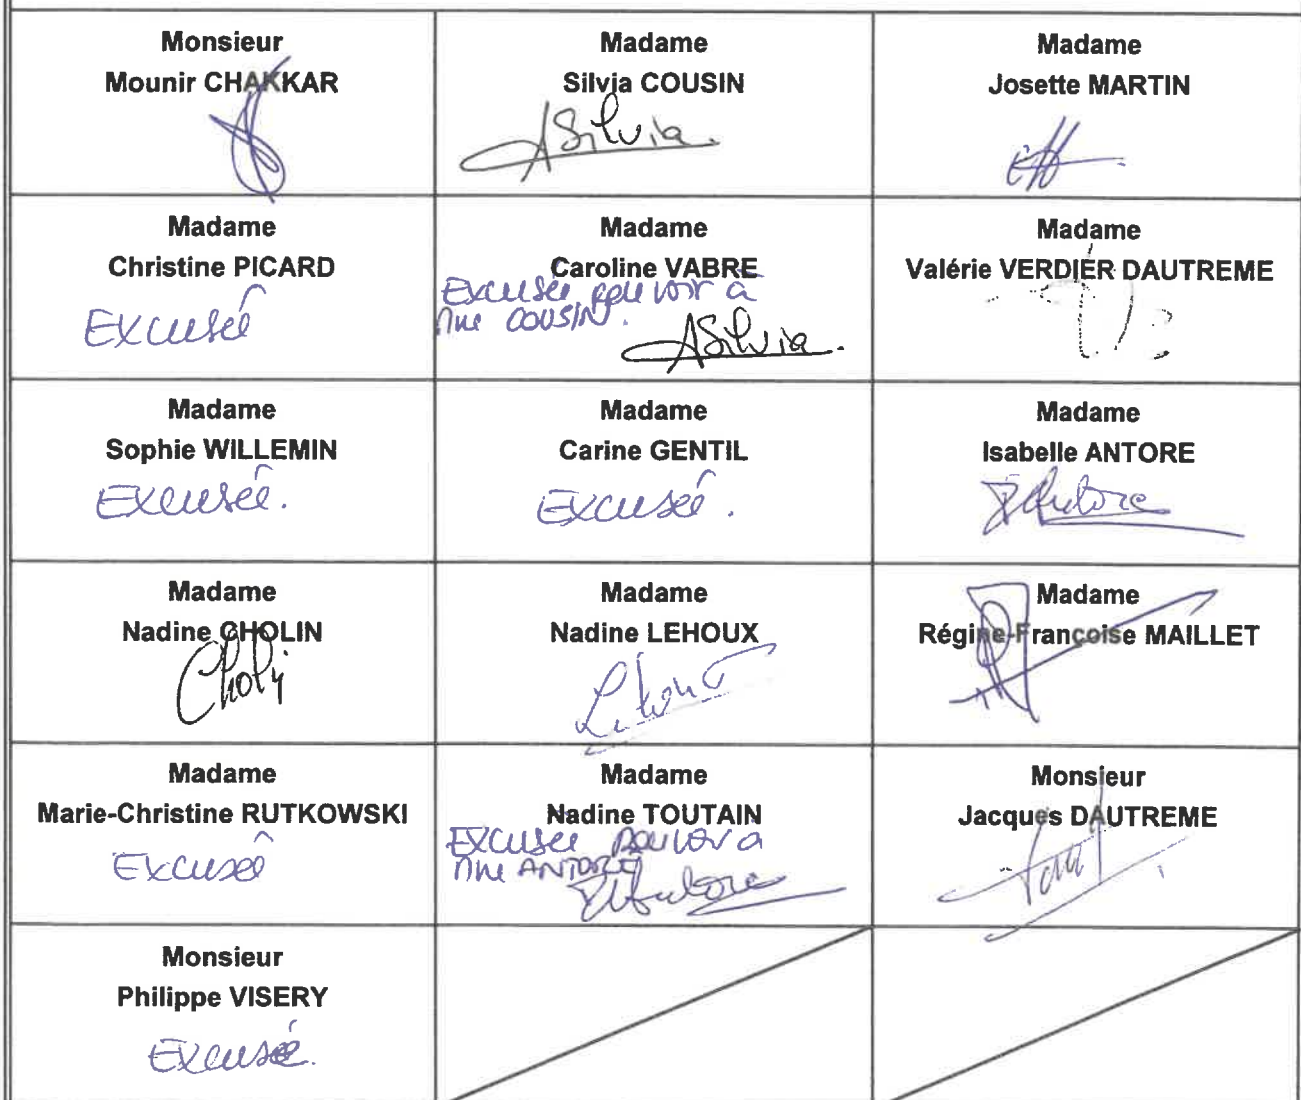 Monsieur
Mounir CHAKKAR
Madame
Silvia COUSIN
ASilvia.
Madame
Josette MARTIN
Madame
Christine PICARD
Excusée
Madame
Caroline VABRE
Excusée pouvoir à
Mme COUSIN.
ASilvia.
Madame
Valérie VERDIER DAUTREME
Madame
Sophie WILLEMIN
Excusée.
Madame
Carine GENTIL
Excusée.
Madame
Isabelle ANTORE
Antore
Madame
Nadine CHOLIN
Choli
Madame
Nadine LEHOUX
Madame
Régine-Françoise MAILLET
Madame
Marie-Christine RUTKOWSKI
Excusée
Madame
Nadine TOUTAIN
Excusée pouvoir à
Mme ANTORE
Antore
Monsieur
Jacques DAUTREME
Monsieur
Philippe VISERY
Excusé.